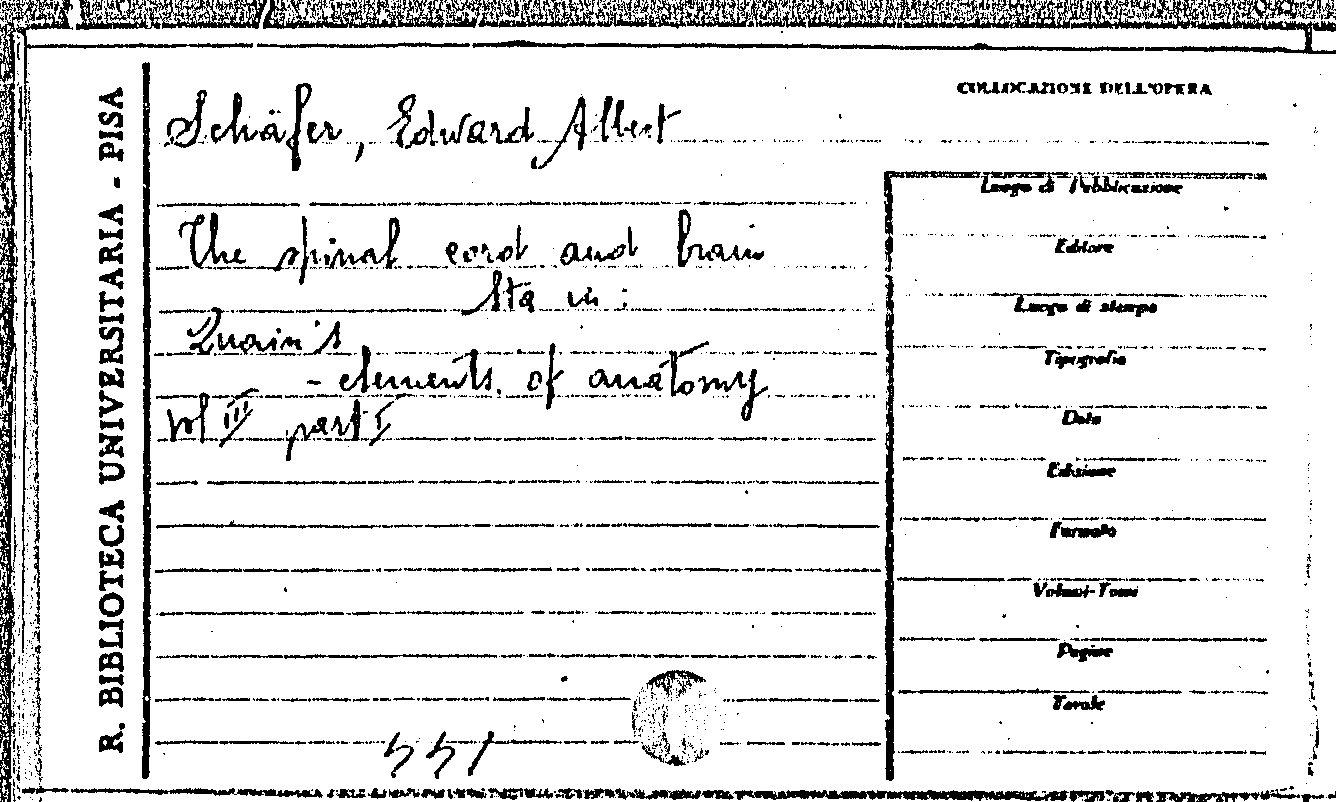 R. BIBLIOTECA UNIVERSITARIA - PISA
COLLOCAZIONE DELL'OPERA
Schäfer, Edward Albert
The spinal cord and brain
Sta in:
Quain's
- elements of anatomy
vol III part I
Luogo di Pubblicazione
Editore
Luogo di stampa
Tipografia
Data
Edizione
Formato
Volumi-Tomi
Pagine
Tavole